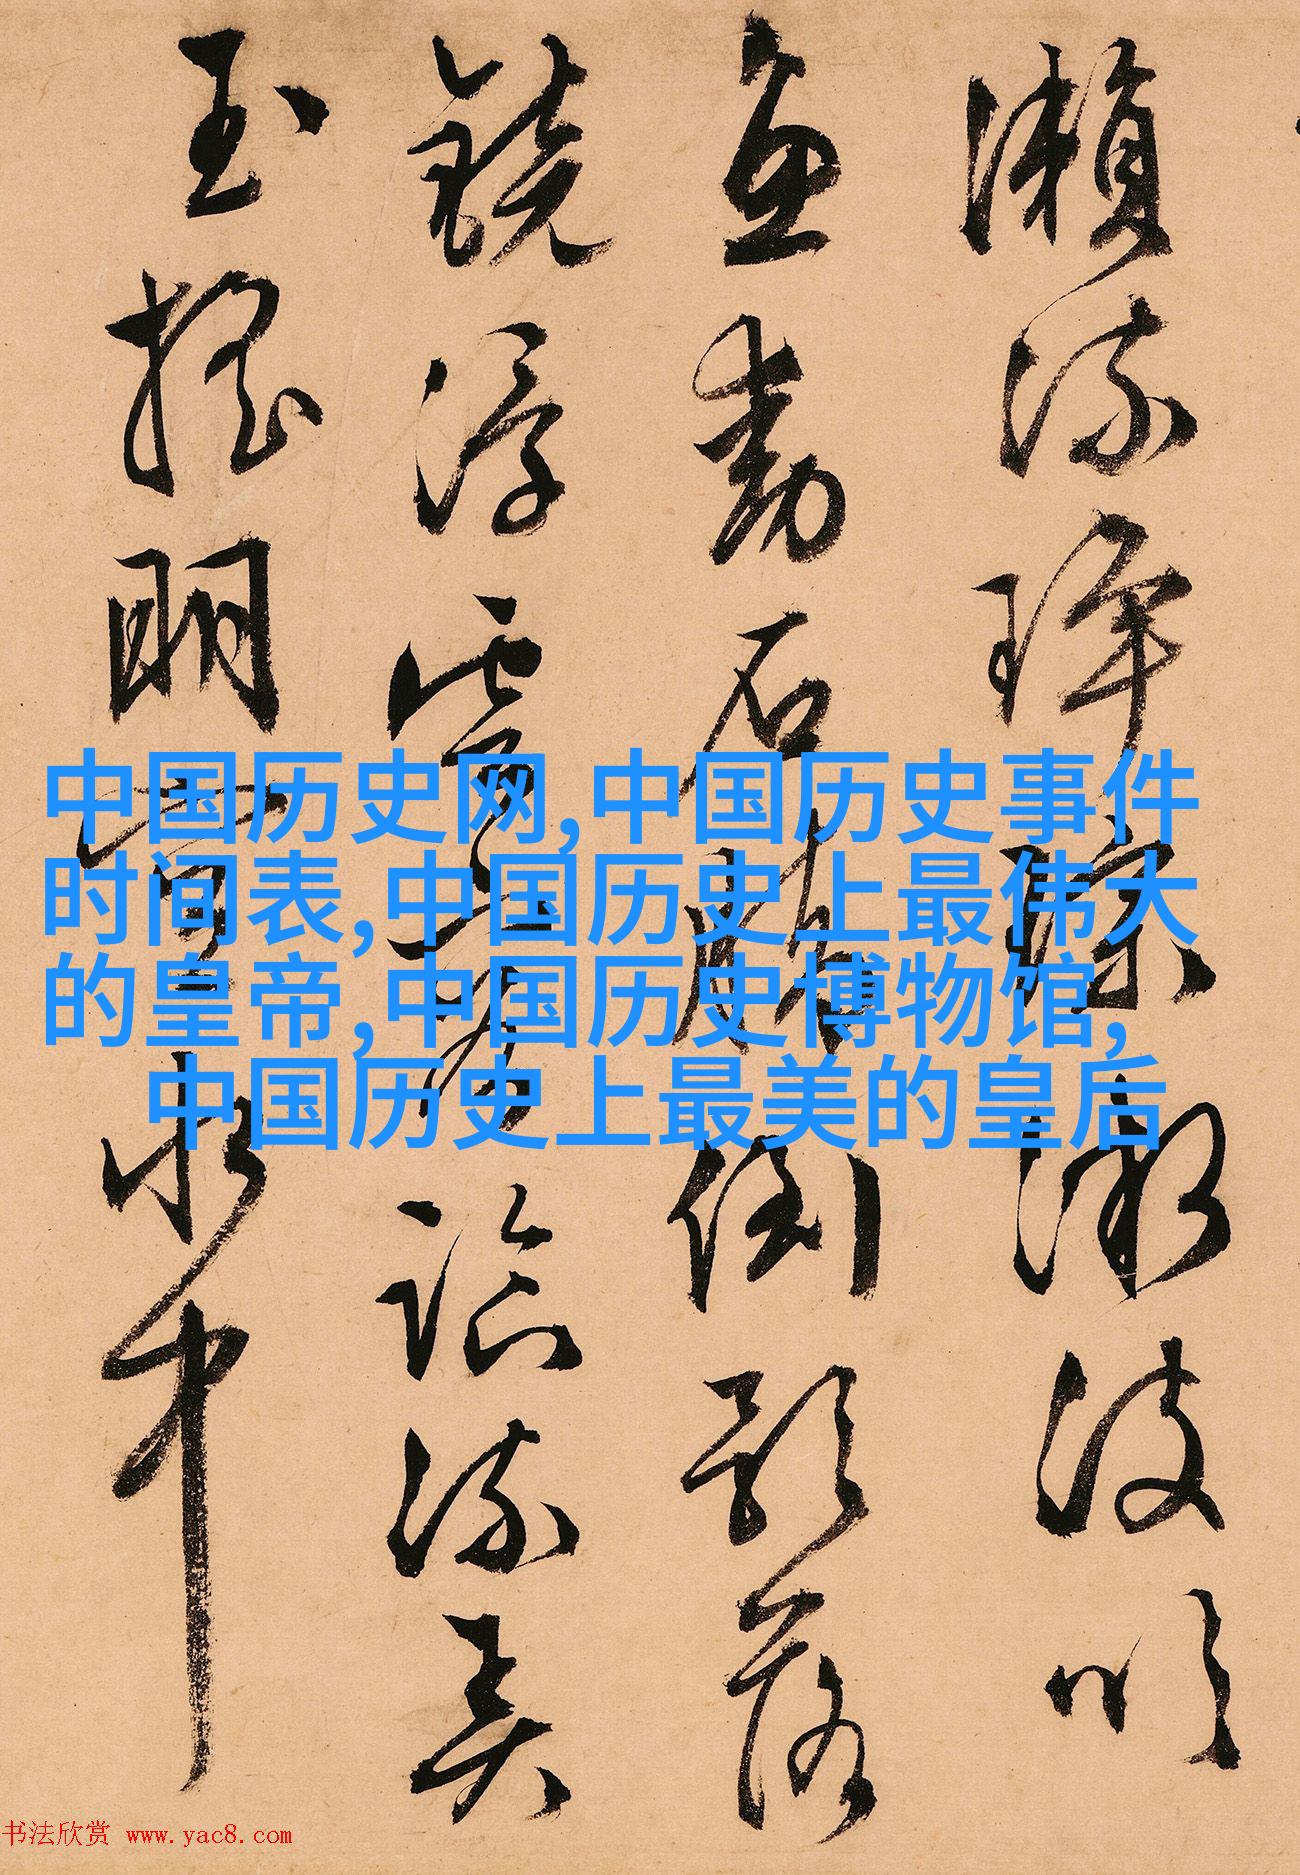 瀨流琤琮波
動石倒影落
鏡浮雲流
玉搖明水中
中国历史网,中国历史事件
时间表,中国历史上最伟大
的皇帝,中国历史博物馆,
中国历史上最美的皇后
书法欣赏 www.yac8.com